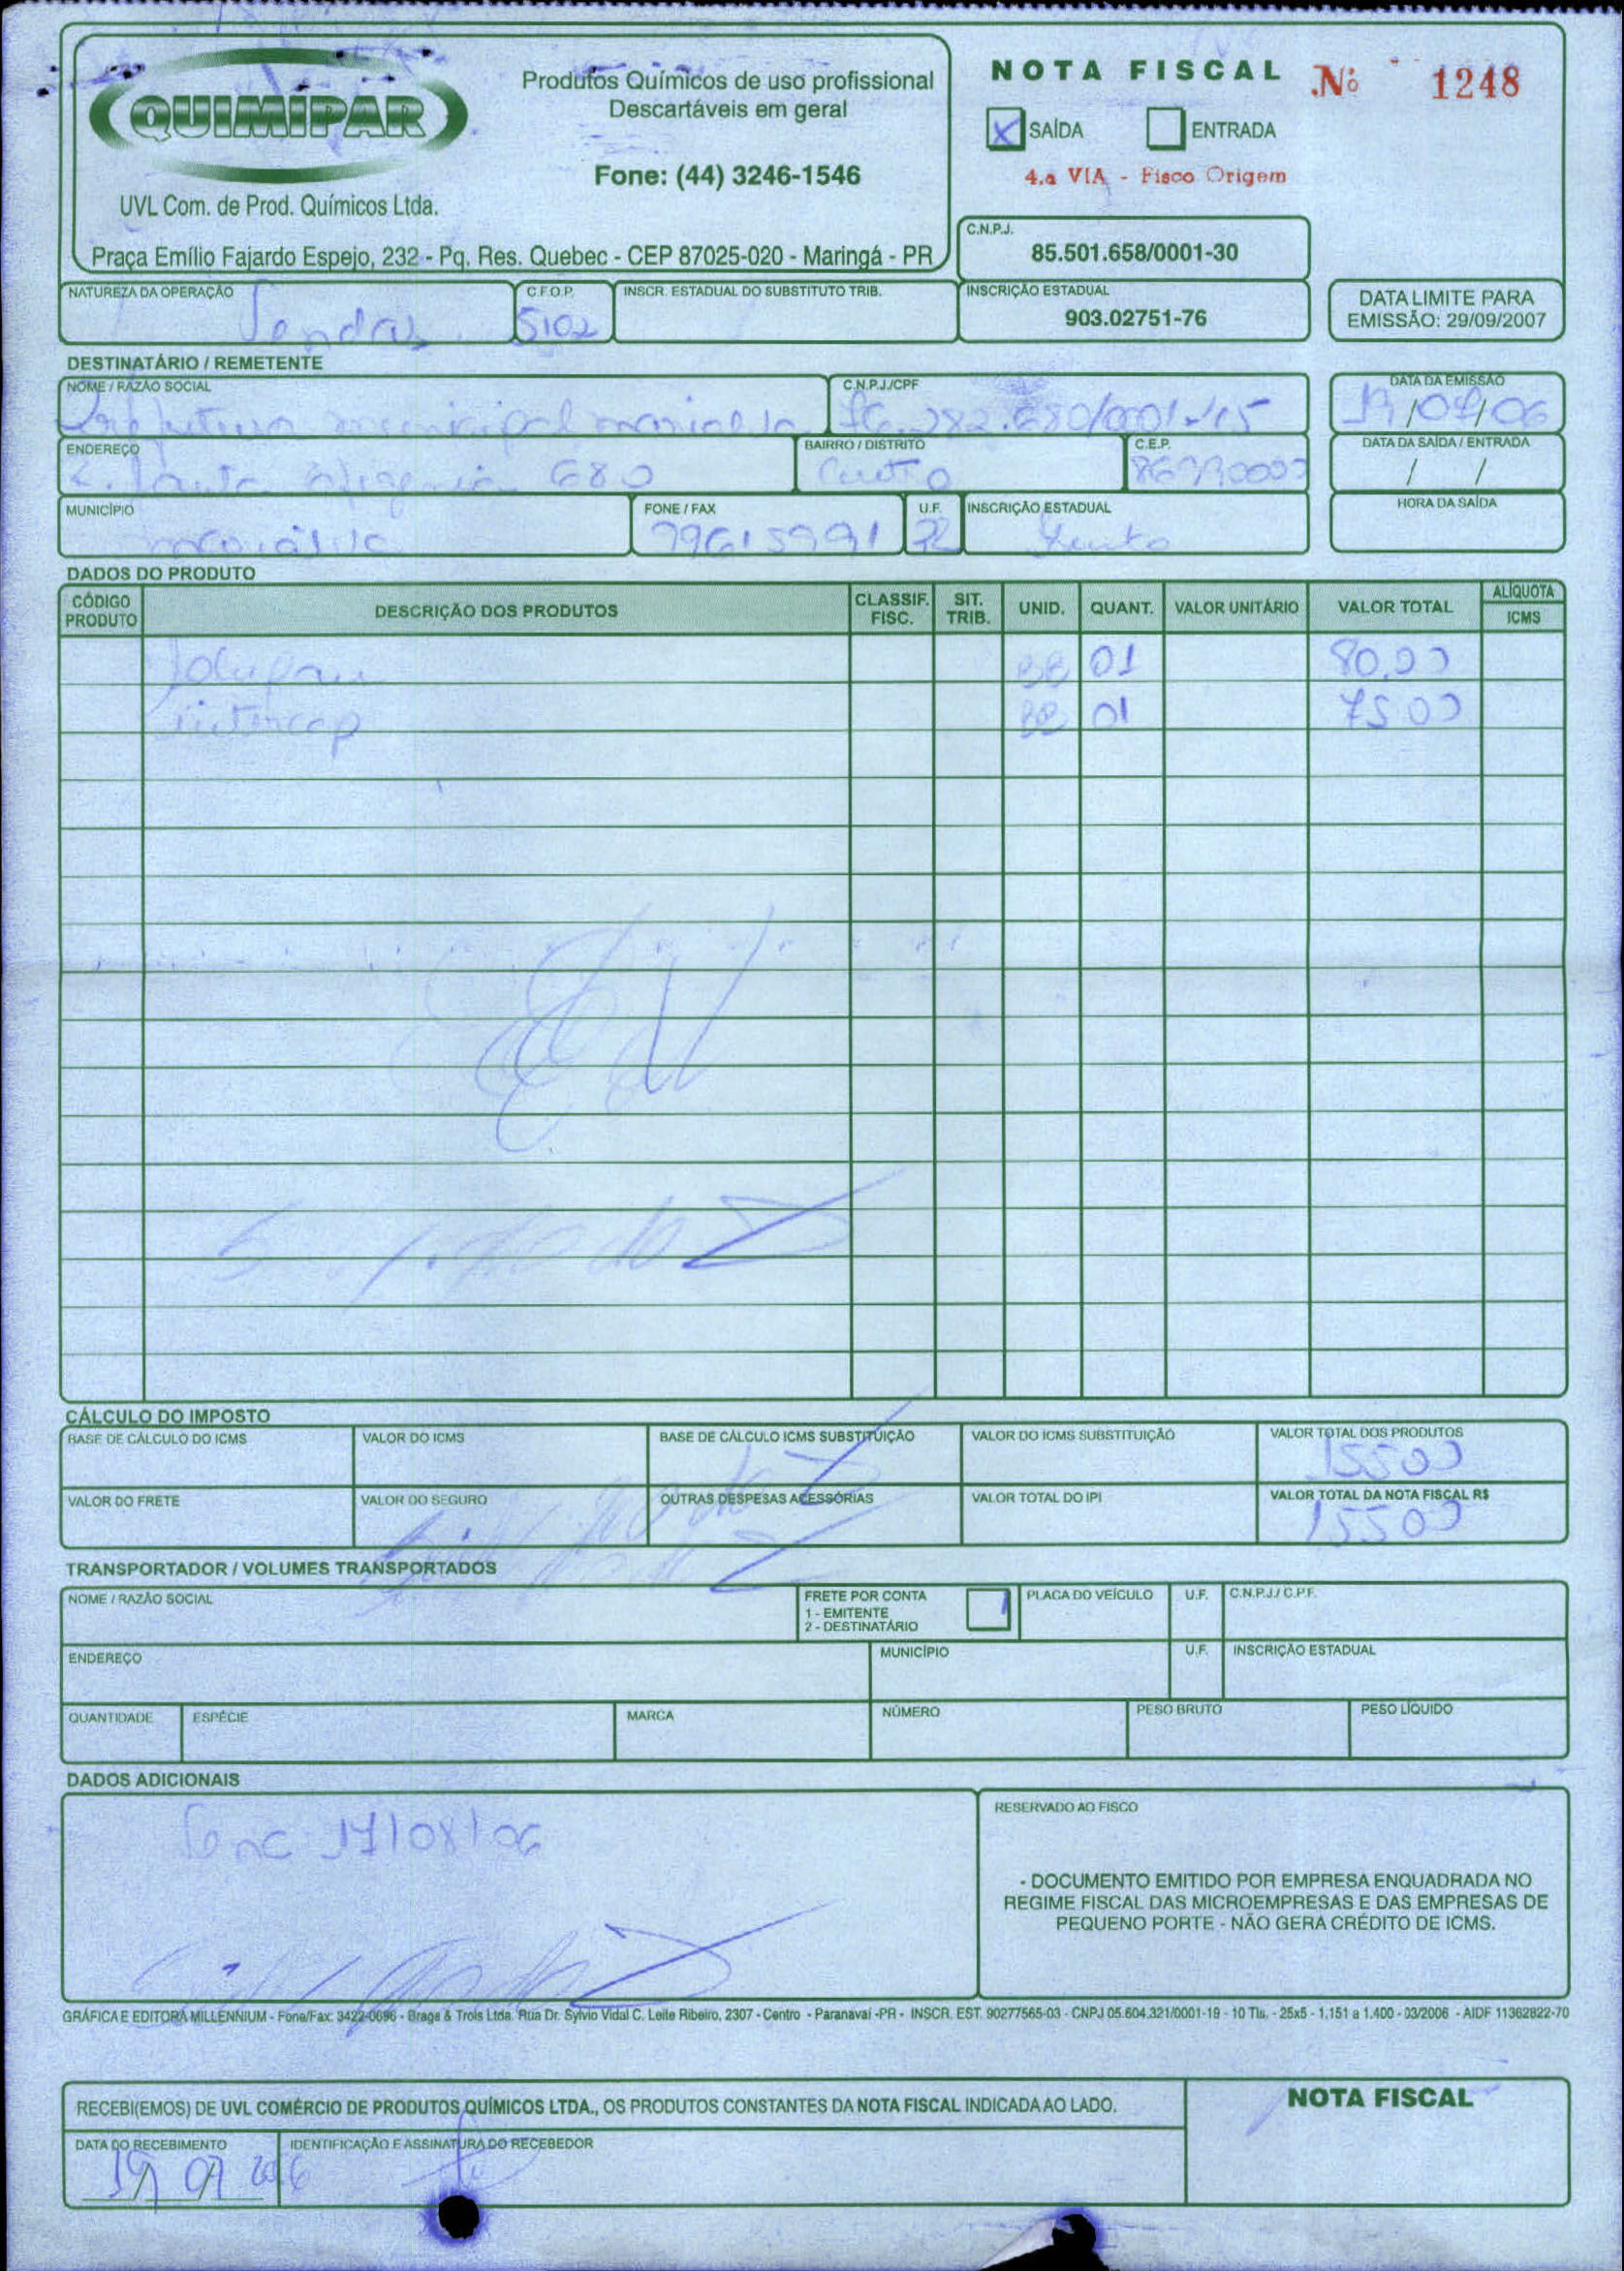 QUIMIPAR
UVL Com. de Prod. Químicos Ltda.
Produtos Químicos de uso profissional
Descartáveis em geral
Fone: (44) 3246-1546
Praça Emílio Fajardo Espejo, 232 - Pq. Res. Quebec - CEP 87025-020 - Maringá - PR
NOTA FISCAL Nº 1248
X SAÍDA ENTRADA
4.a VIA - Fisco Origem
C.N.P.J.
85.501.658/0001-30
NATUREZA DA OPERAÇÃO C.F.O.P. INSCR. ESTADUAL DO SUBSTITUTO TRIB. INSCRIÇÃO ESTADUAL
Vendas 5102 903.02751-76
DATA LIMITE PARA
EMISSÃO: 29/09/2007
DESTINATÁRIO / REMETENTE
NOME / RAZÃO SOCIAL C.N.P.J./CPF DATA DA EMISSÃO
Prefeitura municipal 282.680/0001-15
ENDEREÇO BAIRRO / DISTRITO C.E.P. DATA DA SAÍDA / ENTRADA
680 / /
MUNICÍPIO FONE / FAX U.F. INSCRIÇÃO ESTADUAL HORA DA SAÍDA
DADOS DO PRODUTO
CÓDIGO PRODUTO DESCRIÇÃO DOS PRODUTOS CLASSIF. FISC. SIT. TRIB. UNID. QUANT. VALOR UNITÁRIO VALOR TOTAL ALÍQUOTA ICMS
BB 01 80,00
BB 01 75,00
CÁLCULO DO IMPOSTO
BASE DE CÁLCULO DO ICMS VALOR DO ICMS BASE DE CÁLCULO ICMS SUBSTITUIÇÃO VALOR DO ICMS SUBSTITUIÇÃO VALOR TOTAL DOS PRODUTOS
15500
VALOR DO FRETE VALOR DO SEGURO OUTRAS DESPESAS ACESSÓRIAS VALOR TOTAL DO IPI VALOR TOTAL DA NOTA FISCAL R$
15500
TRANSPORTADOR / VOLUMES TRANSPORTADOS
NOME / RAZÃO SOCIAL FRETE POR CONTA PLACA DO VEÍCULO U.F. C.N.P.J./ C.P.F.
1 - EMITENTE
2 - DESTINATÁRIO
1
ENDEREÇO MUNICÍPIO U.F. INSCRIÇÃO ESTADUAL
QUANTIDADE ESPÉCIE MARCA NÚMERO PESO BRUTO PESO LÍQUIDO
DADOS ADICIONAIS
Venc: 17/08/06
RESERVADO AO FISCO
- DOCUMENTO EMITIDO POR EMPRESA ENQUADRADA NO
REGIME FISCAL DAS MICROEMPRESAS E DAS EMPRESAS DE
PEQUENO PORTE - NÃO GERA CRÉDITO DE ICMS.
GRÁFICA E EDITORA MILLENNIUM - Fone/Fax: 3422-0696 - Braga & Trois Ltda. Rua Dr. Sylvio Vidal C. Leite Ribeiro, 2307 - Centro - Paranavaí -PR - INSCR. EST. 90277565-03 - CNPJ 05.604.321/0001-19 - 10 Tls. - 25x5 - 1.151 a 1.400 - 03/2006 - AIDF 11362822-70
RECEBI(EMOS) DE UVL COMÉRCIO DE PRODUTOS QUÍMICOS LTDA., OS PRODUTOS CONSTANTES DA NOTA FISCAL INDICADA AO LADO.
NOTA FISCAL
DATA DO RECEBIMENTO IDENTIFICAÇÃO E ASSINATURA DO RECEBEDOR